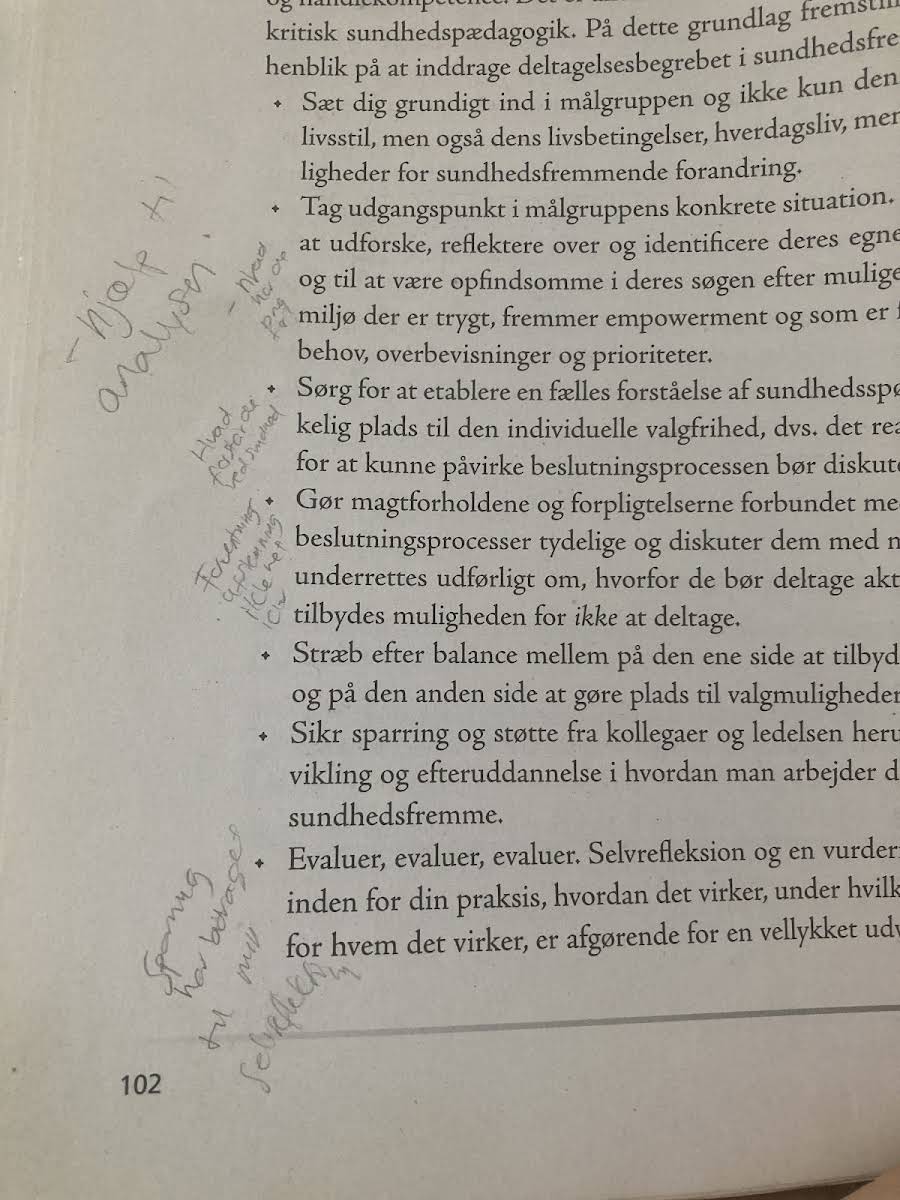 og handlekompetence. Det er
kritisk sundhedspædagogik. På dette grundlag fremstil
henblik på at inddrage deltagelsesbegrebet i sundhedsfre
Sæt dig grundigt ind i målgruppen og ikke kun den
livsstil, men også dens livsbetingelser, hverdagsliv, mer
ligheder for sundhedsfremmende forandring.
Tag udgangspunkt i målgruppens konkrete situation.
at udforske, reflektere over og identificere deres egne
og til at være opfindsomme i deres søgen efter mulige
miljø der er trygt, fremmer empowerment og som er f
behov, overbevisninger og prioriteter.
Sørg for at etablere en fælles forståelse af sundhedsspø
kelig plads til den individuelle valgfrihed, dvs. det rea
for at kunne påvirke beslutningsprocessen bør diskute
Gør magtforholdene og forpligtelserne forbundet me
beslutningsprocesser tydelige og diskuter dem med n
underrettes udførligt om, hvorfor de bør deltage akt
tilbydes muligheden for ikke at deltage.
Stræb efter balance mellem på den ene side at tilbyd
og på den anden side at gøre plads til valgmuligheder
Sikr sparring og støtte fra kollegaer og ledelsen heru
vikling og efteruddannelse i hvordan man arbejder d
sundhedsfremme.
Evaluer, evaluer, evaluer. Selvrefleksion og en vurder
inden for din praksis, hvordan det virker, under hvilk
for hvem det virker, er afgørende for en vellykket udv
- hjælp til
analysen.
- Hvad
har de
Hvad
forstår de
ved sundhed
Forventning
afstemning
Sparring
har bidraget
til min
selvrefleksion
102